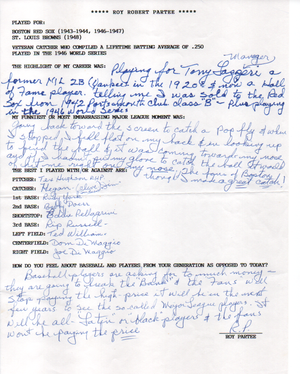 ***** ROY ROBERT PARTEE *****
PLAYED FOR:
BOSTON RED SOX (1943-1944, 1946-1947)
ST. LOUIS BROWNS (1948)
VETERAN CATCHER WHO COMPILED A LIFETIME BATTING AVERAGE OF .250
PLAYED IN THE 1946 WORLD SERIES
Manager
THE HIGHLIGHT OF MY CAREER WAS: Playing for Tony Lazzeri a
former M/L 2B (Yankees in the 1920's & now a Hall
of Fame player. telling me I was Sold to the Red
Sox from 1942 Portsmouth club class "B" - Plus playing
in the 1946 World Series
MY FUNNIEST OR MOST EMBARRASSING MAJOR LEAGUE MOMENT WAS:
going back toward the screen to catch a Pop fly & when
I slipped & fell flat on my back & was looking up
to find the ball & it was coming toward my nose
The fans of Boston
thought I made a great catch!
THE BEST I PLAYED WITH/OR AGAINST ARE:
PITCHER: Tex Hughson
CATCHER: Hegan
1st BASE: Rudy York
2nd BASE: Bobby Doerr
SHORTSTOP: Eddie Pellagrini
3rd BASE: Rip Russell
LEFT FIELD: Ted Williams
CENTERFIELD: Dom DiMaggio
RIGHT FIELD: Joe DiMaggio
HOW DO YOU FEEL ABOUT BASEBALL AND PLAYERS FROM YOUR GENERATION AS OPPOSED TO TODAY?
Baseball players are asking for to much money -
they are going to break the Bank & the fans will
Stop playing the high price & will be in the next
few years to see the so called Major League players. It
will be all Latin or black players & the fans
won't be paying the price
R.P.
ROY PARTEE